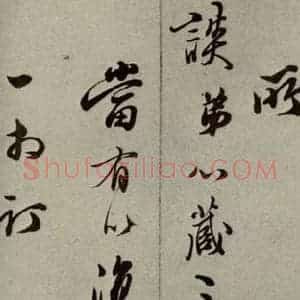 所
談弟心藏
當有以
一相訂
Shufaziliao.com